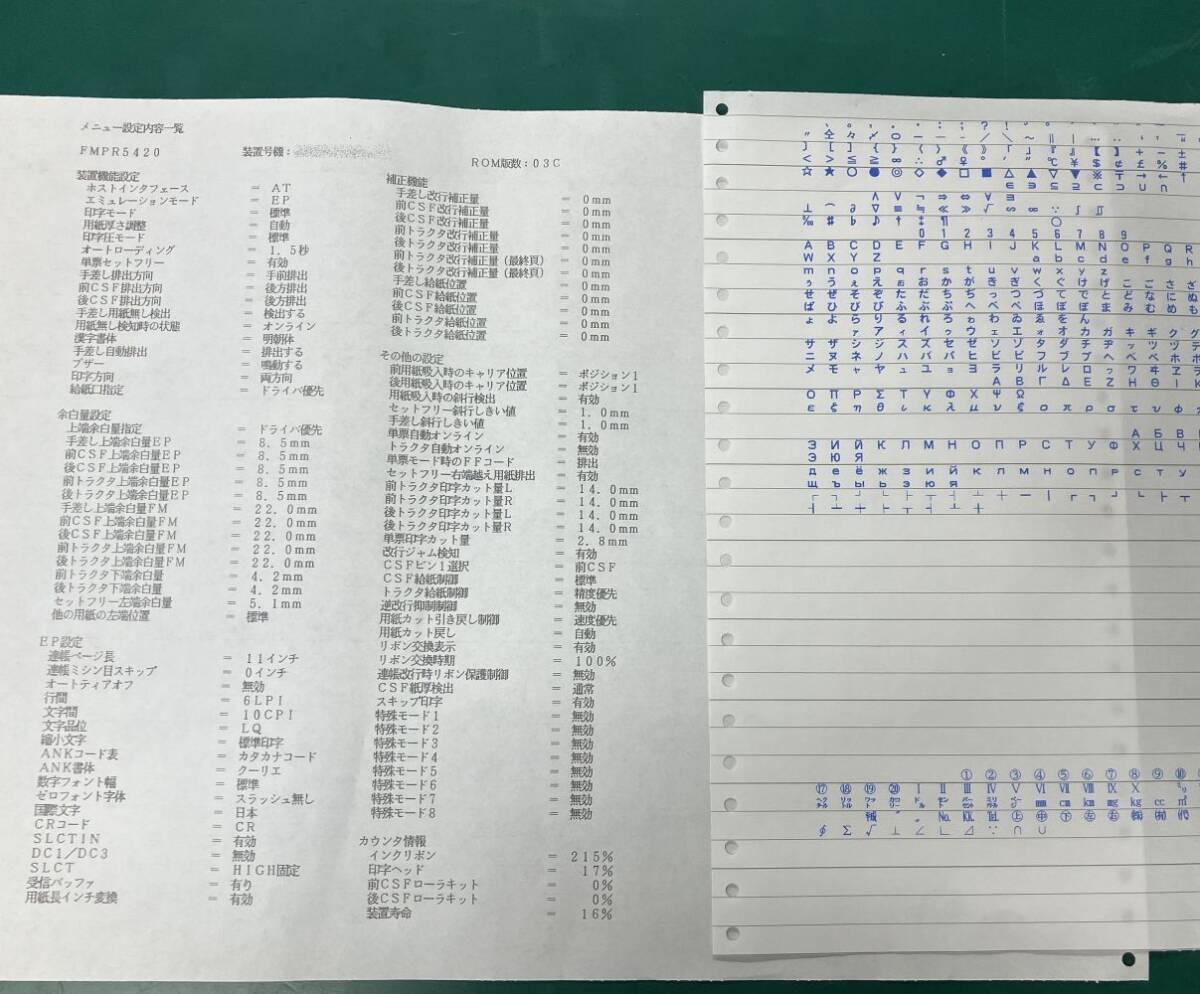 メニュー設定内容一覧
FMPR5420
装置号機:
ROM版数:03C
装置機能設定
ホストインタフェース = AT
エミュレーションモード = EP
印字モード = 標準
用紙厚さ調整 = 自動
印字圧モード = 標準
オートローディング = 1.5秒
単票セットフリー = 有効
手差し排出方向 = 手前排出
前CSF排出方向 = 後方排出
後CSF排出方向 = 後方排出
手差し用紙無し検出 = 検出する
用紙無し検知時の状態 = オンライン
漢字書体 = 明朝体
手差し自動排出 = 排出する
ブザー = 鳴動する
印字方向 = 両方向
給紙口指定 = ドライバ優先
余白量設定
上端余白量指定 = ドライバ優先
手差し上端余白量EP = 8.5mm
前CSF上端余白量EP = 8.5mm
後CSF上端余白量EP = 8.5mm
前トラクタ上端余白量EP = 8.5mm
後トラクタ上端余白量EP = 8.5mm
手差し上端余白量FM = 22.0mm
前CSF上端余白量FM = 22.0mm
後CSF上端余白量FM = 22.0mm
前トラクタ上端余白量FM = 22.0mm
後トラクタ上端余白量FM = 22.0mm
前トラクタ下端余白量 = 4.2mm
後トラクタ下端余白量 = 4.2mm
セットフリー左端余白量 = 5.1mm
他の用紙の左端位置 = 標準
EP設定
連帳ページ長 = 11インチ
連帳ミシン目スキップ = 0インチ
オートティアオフ = 無効
行間 = 6LPI
文字間 = 10CPI
文字品位 = LQ
縮小文字 = 標準印字
ANKコード表 = カタカナコード
ANK書体 = クーリエ
数字フォント幅 = 標準
ゼロフォント字体 = スラッシュ無し
国際文字 = 日本
CRコード = CR
SLCTIN = 有効
DC1/DC3 = 無効
SLCT = HIGH固定
受信バッファ = 有り
用紙長インチ変換 = 有効
補正機能
手差し改行補正量 = 0mm
前CSF改行補正量 = 0mm
後CSF改行補正量 = 0mm
前トラクタ改行補正量 = 0mm
後トラクタ改行補正量 = 0mm
前トラクタ改行補正量(最終頁) = 0mm
後トラクタ改行補正量(最終頁) = 0mm
手差し給紙位置 = 0mm
前CSF給紙位置 = 0mm
後CSF給紙位置 = 0mm
前トラクタ給紙位置 = 0mm
後トラクタ給紙位置 = 0mm
その他の設定
前用紙吸入時のキャリア位置 = ポジション1
後用紙吸入時のキャリア位置 = ポジション1
用紙吸入時の斜行検出 = 有効
セットフリー斜行しきい値 = 1.0mm
手差し斜行しきい値 = 1.0mm
単票自動オンライン = 有効
トラクタ自動オンライン = 無効
単票モード時のFFコード = 排出
セットフリー右端越え用紙排出 = 有効
前トラクタ印字カット量L = 14.0mm
前トラクタ印字カット量R = 14.0mm
後トラクタ印字カット量L = 14.0mm
後トラクタ印字カット量R = 14.0mm
単票印字カット量 = 2.8mm
改行ジャム検知 = 有効
CSFビン1選択 = 前CSF
CSF給紙制御 = 標準
トラクタ給紙制御 = 精度優先
逆改行抑制制御 = 無効
用紙カット引き戻し制御 = 速度優先
用紙カット戻し = 自動
リボン交換表示 = 有効
リボン交換時期 = 100%
連帳改行時リボン保護制御 = 無効
CSF紙厚検出 = 通常
スキップ印字 = 有効
特殊モード1 = 無効
特殊モード2 = 無効
特殊モード3 = 無効
特殊モード4 = 無効
特殊モード5 = 無効
特殊モード6 = 無効
特殊モード7 = 無効
特殊モード8 = 無効
カウンタ情報
インクリボン = 215%
印字ヘッド = 17%
前CSFローラキット = 0%
後CSFローラキット = 0%
装置寿命 = 16%
〃 仝 々 〆 〇 ー ― ‐ / \ ~ ∥ | … ‥
< > ≦ ≧ ∞ ∴ ♂ ♀ ° ′ ″ ℃ ¥ $ ¢ £ % #
☆ ★ ○ ● ◎ ◇ ◆ □ ■ △ ▲ ▽ ▼ ※ 〒 → ← ↑
∈ ∋ ⊆ ⊇ ⊂ ⊃ ∪ ∩
∧ ∨ ¬ ⇒ ⇔ ∀ ∃
⊥ ⌒ ∂ ∇ ≡ ≒ ≪ ≫ √ ∽ ∝ ∵ ∫ ∬
‰ ♯ ♭ ♪ † ‡ ¶ ◯
0 1 2 3 4 5 6 7 8 9
A B C D E F G H I J K L M N O P Q R
W X Y Z a b c d e f g h
m n o p q r s t u v w x y z
ぅ う ぇ え ぉ お か が き ぎ く ぐ け げ こ ご さ ざ
せ ぜ そ ぞ た だ ち ぢ っ つ づ て で と ど な に ぬ
ば ひ び ぴ ふ ぶ ぷ へ べ ぺ ほ ぼ ぽ ま み む め も
ょ よ ら り る れ ろ ゎ わ ゐ ゑ を ん
ァ ア ィ イ ゥ ウ ェ エ ォ オ カ ガ キ ギ ク グ
サ ザ シ ジ ス ズ セ ゼ ソ ゾ タ ダ チ ヂ ッ ツ ヅ テ
ニ ヌ ネ ノ ハ バ パ ヒ ビ ピ フ ブ プ ヘ ベ ペ ホ ボ
メ モ ャ ヤ ュ ユ ョ ヨ ラ リ ル レ ロ ヮ ワ ヰ ヱ ヲ
Α Β Γ Δ Ε Ζ Η Θ Ι Κ
Ο Π Ρ Σ Τ Υ Φ Χ Ψ Ω
ε ζ η θ ι κ λ μ ν ξ ο π ρ σ τ υ φ χ
А Б В Г
З И Й К Л М Н О П Р С Т У Ф Х Ц Ч
Э Ю Я
д е ё ж з и й к л м н о п р с т у
щ ъ ы ь э ю я
① ② ③ ④ ⑤ ⑥ ⑦ ⑧ ⑨ ⑩
⑰ ⑱ ⑲ ⑳ Ⅰ Ⅱ Ⅲ Ⅳ Ⅴ Ⅵ Ⅶ Ⅷ Ⅸ Ⅹ ㍉
㌶ ㍑ ㌧ ㌍ ㌦ ㌣ ㌫ ㍊ ㌻ ㎜ ㎝ ㎞ ㎎ ㎏ ㏄ ㎡
㍻ 〝 〟 № ㏍ ℡ ㊤ ㊥ ㊦ ㊧ ㊨ ㈱ ㈲ ㈹
∮ ∑ √ ⊥ ∠ ∟ ⊿ ∵ ∩ ∪